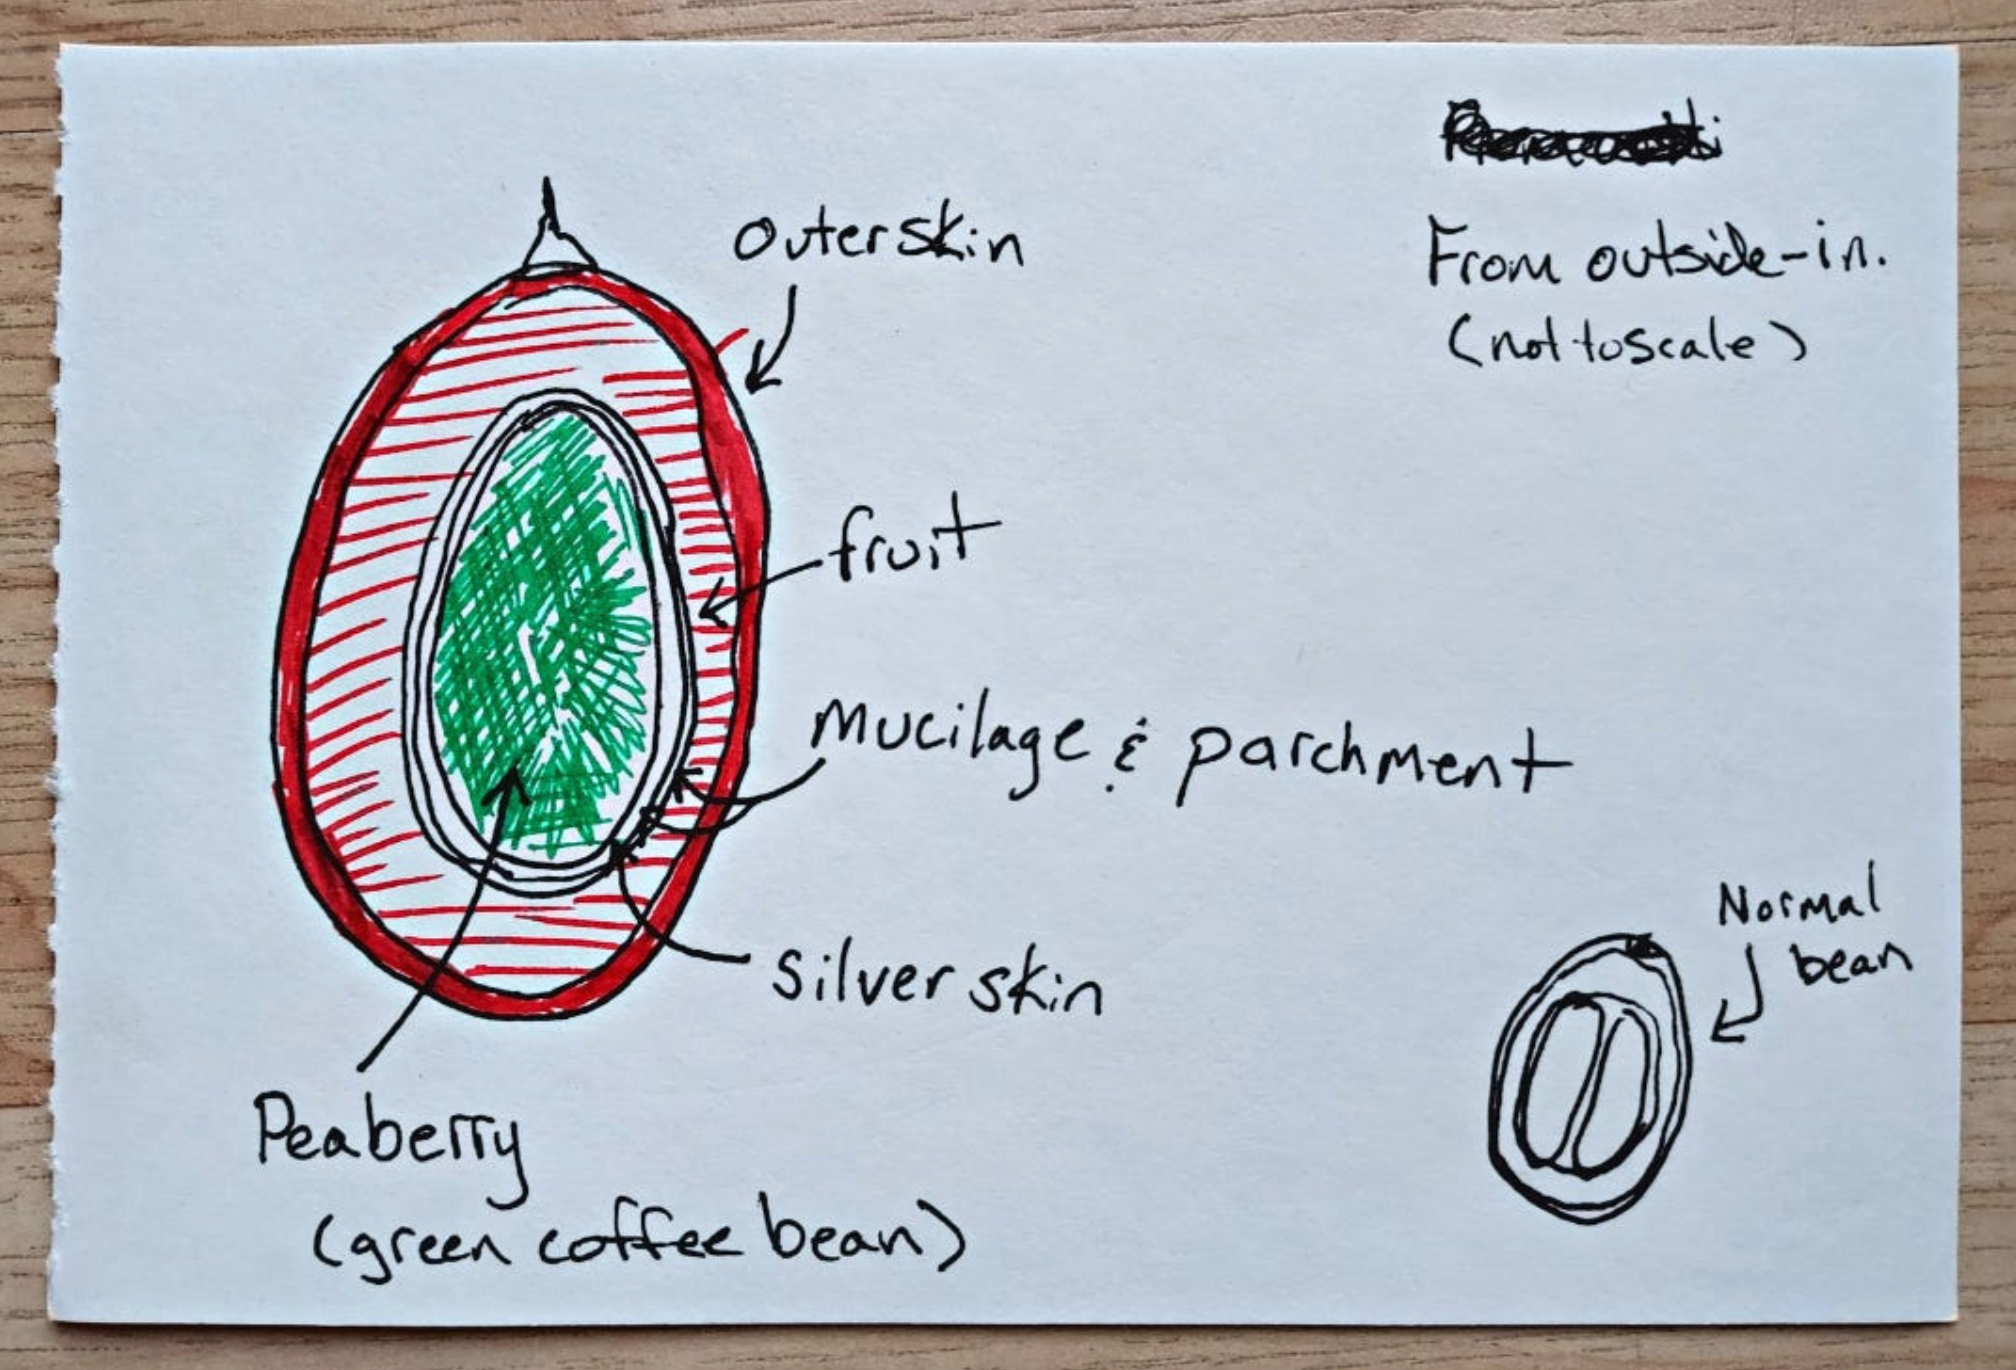 Outerskin
From outside-in.
(not to scale)
fruit
Mucilage & parchment
Normal
bean
Silver skin
Peaberry
(green coffee bean)